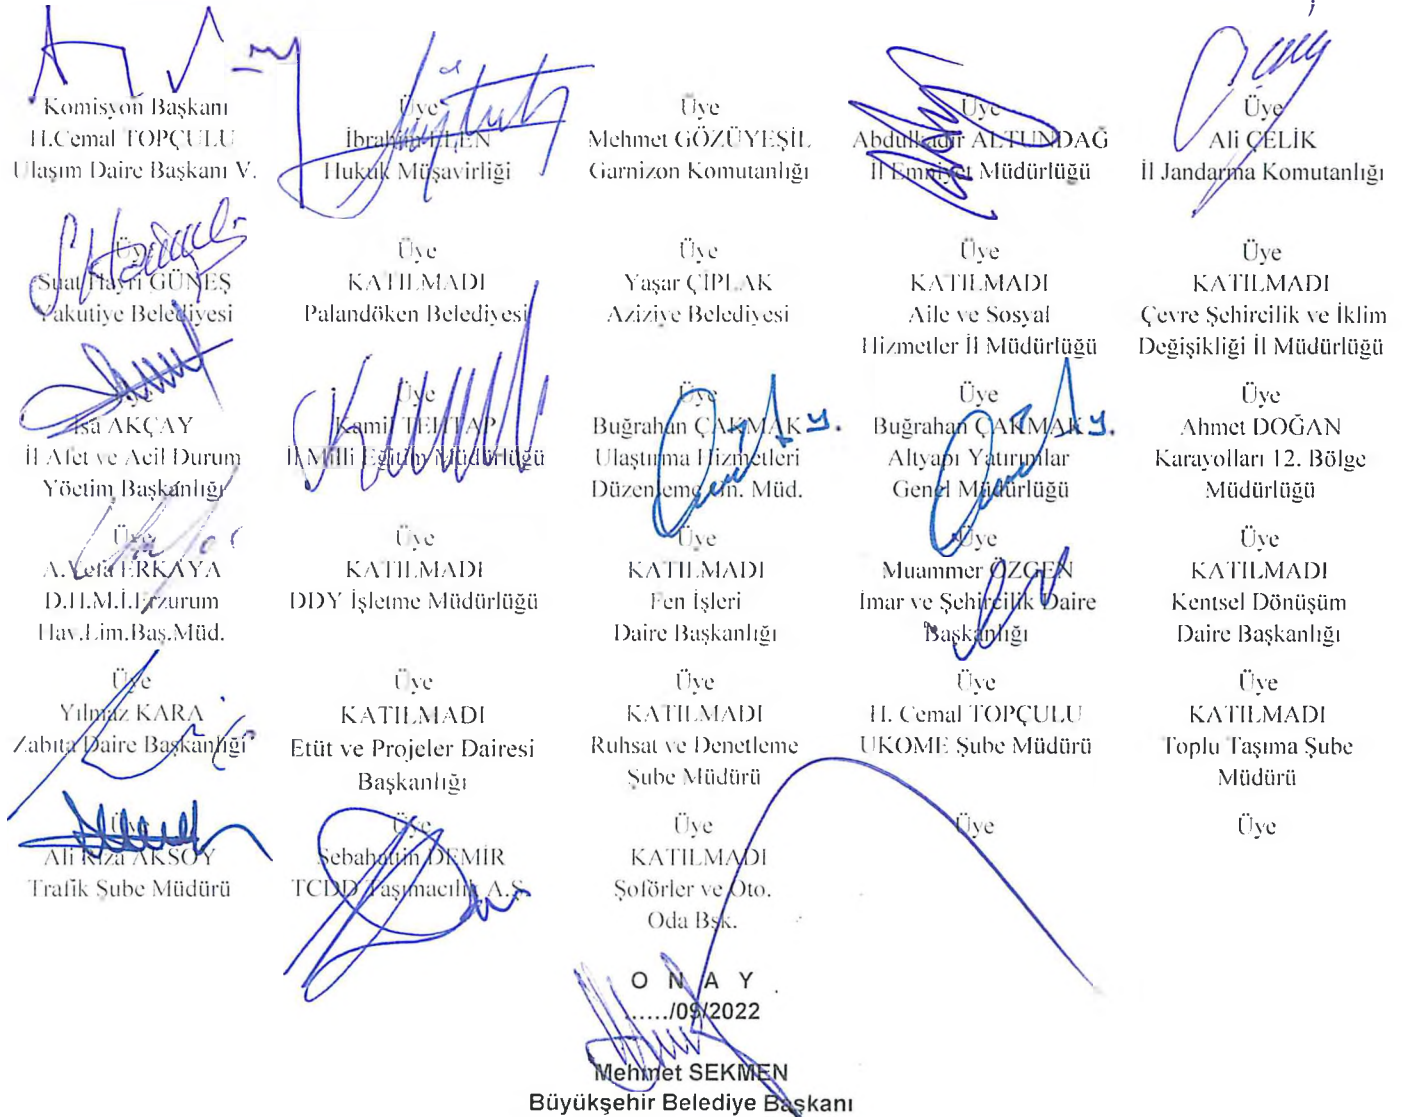 Komisyon Başkanı
H.Cemal TOPÇULU
Ulaşım Daire Başkanı V.
Üye
İbrahim ELEN
Hukuk Müşavirliği
Üye
Mehmet GÖZÜYEŞİL
Garnizon Komutanlığı
Üye
Abdulkadir ALTUNDAĞ
İl Emniyet Müdürlüğü
Üye
Ali ÇELİK
İl Jandarma Komutanlığı
Üye
Suat Hayri GÜNEŞ
Yakutiye Belediyesi
Üye
KATILMADI
Palandöken Belediyesi
Üye
Yaşar ÇIPLAK
Aziziye Belediyesi
Üye
KATILMADI
Aile ve Sosyal
Hizmetler İl Müdürlüğü
Üye
KATILMADI
Çevre Şehircilik ve İklim
Değişikliği İl Müdürlüğü
Üye
İsa AKÇAY
İl Afet ve Acil Durum
Yöetim Başkanlığı
Üye
Kamil
İl Milli Eğitim Müdürlüğü
Üye
Buğrahan ÇAKMAK y.
Ulaştırma Hizmetleri
Düzenleme Gn. Müd.
Üye
Buğrahan ÇAKMAK y.
Altyapı Yatırımlar
Genel Müdürlüğü
Üye
Ahmet DOĞAN
Karayolları 12. Bölge
Müdürlüğü
Üye
A.Vefa ERKAYA
D.H.M.İ.Erzurum
Hav.Lim.Baş.Müd.
Üye
KATILMADI
DDY İşletme Müdürlüğü
Üye
KATILMADI
Fen İşleri
Daire Başkanlığı
Üye
Muammer ÖZGEN
İmar ve Şehircilik Daire
Başkanlığı
Üye
KATILMADI
Kentsel Dönüşüm
Daire Başkanlığı
Üye
Yılmaz KARA
Zabıta Daire Başkanlığı
Üye
KATILMADI
Etüt ve Projeler Dairesi
Başkanlığı
Üye
KATILMADI
Ruhsat ve Denetleme
Şube Müdürü
Üye
H. Cemal TOPÇULU
UKOME Şube Müdürü
Üye
KATILMADI
Toplu Taşıma Şube
Müdürü
Üye
Ali Rıza AKSOY
Trafik Şube Müdürü
Üye
Sebahattin DEMİR
TCDD Taşımacılık A.Ş.
Üye
KATILMADI
Şoförler ve Oto.
Oda Bşk.
Üye
Üye
O N A Y
....../09/2022
Mehmet SEKMEN
Büyükşehir Belediye Başkanı